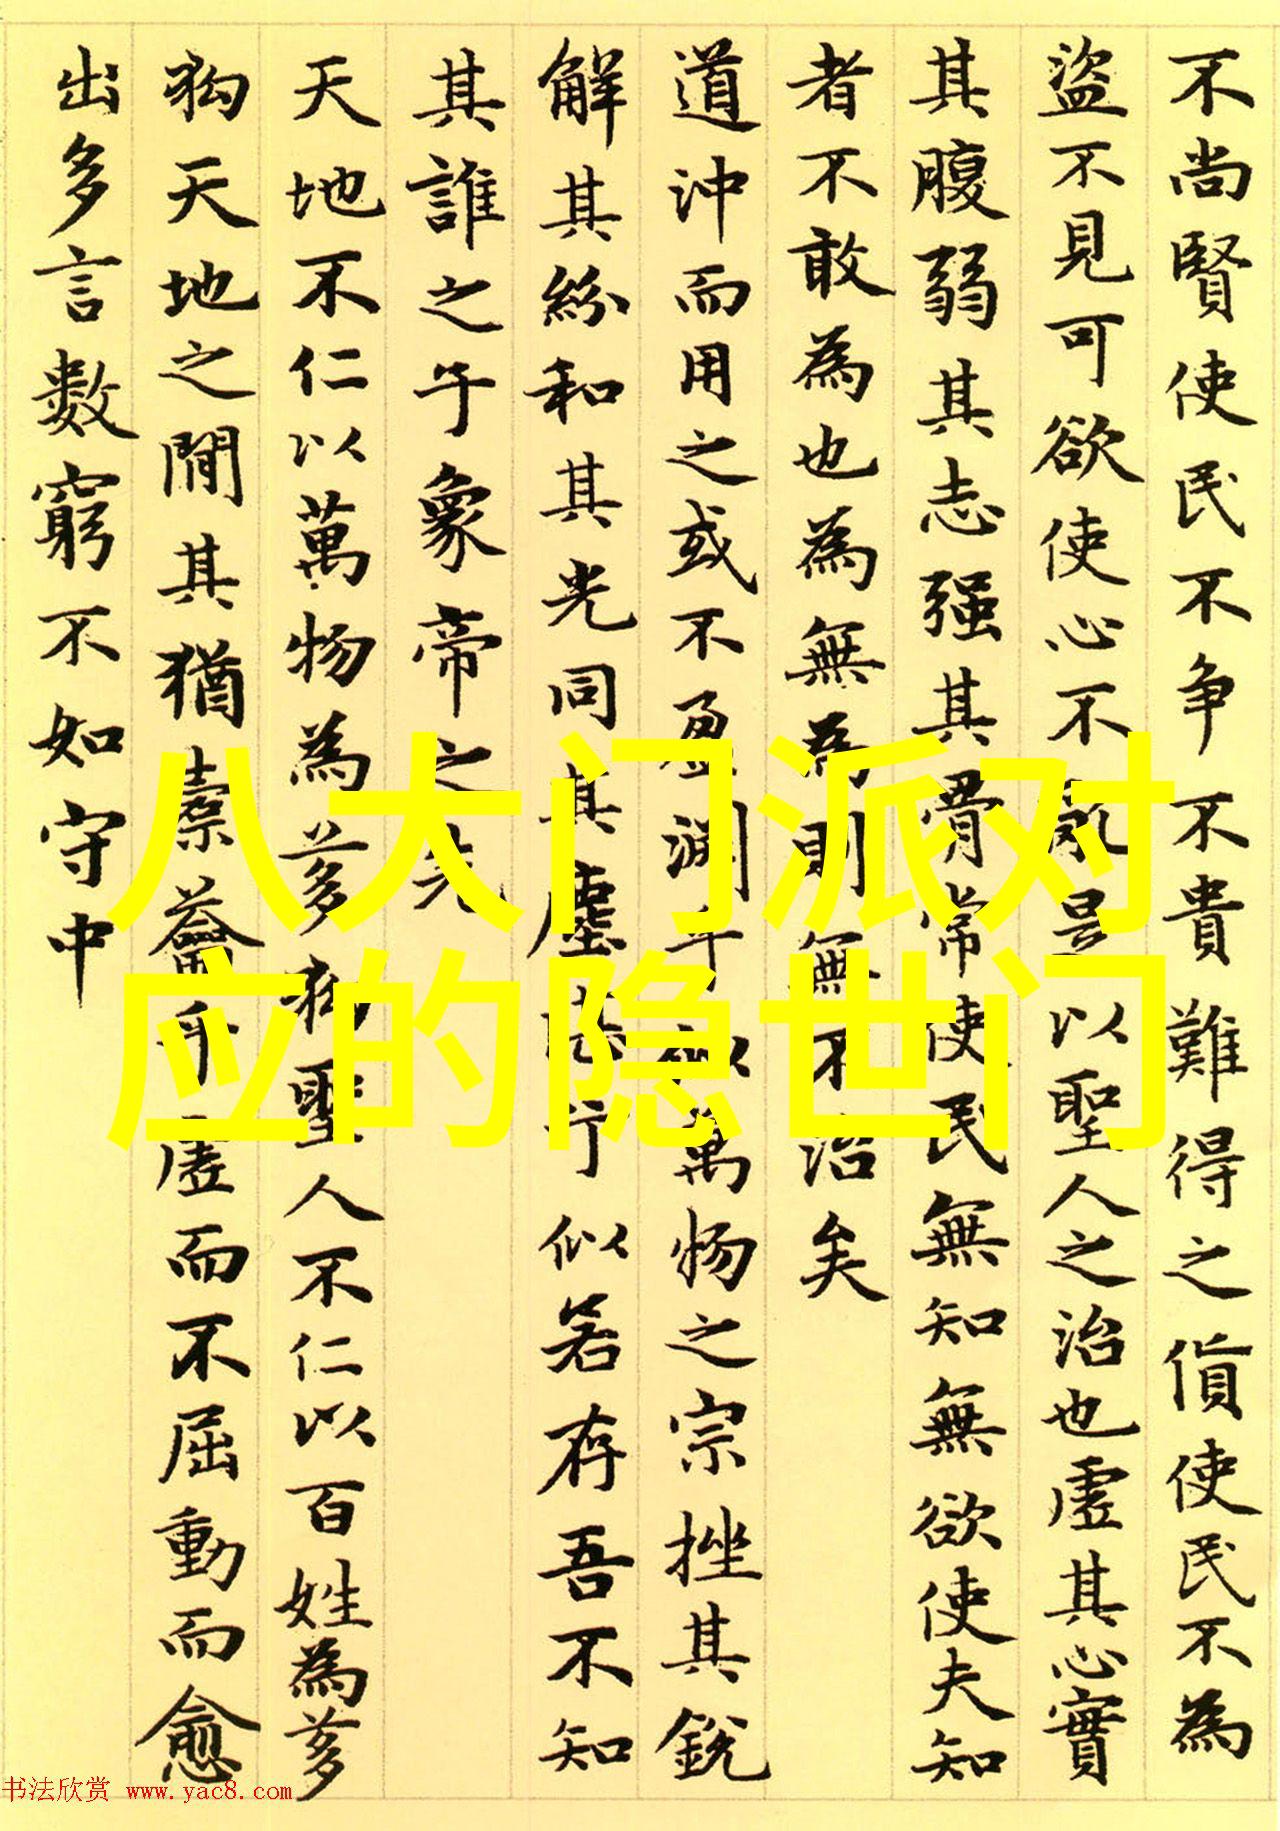 不尚賢使民不争不貴難得之貨使民不為
盜不見可欲使心不亂是以聖人之治也虛其心實
其腹弱其志强其骨常使民無知無欲使夫知
者不敢為也為無為則無不治矣
道沖而用之或不盈淵乎似萬物之宗挫其銳
解其紛和其光同其塵 兮似若存吾不知
其誰之子象帝之先
天地不仁以萬物為芻狗聖人不仁以百姓為芻
狗天地之間其猶橐籥乎虛而不屈動而愈
出多言數窮不如守中
八大门派对
应的隐世门
书法欣赏 www.yac8.com